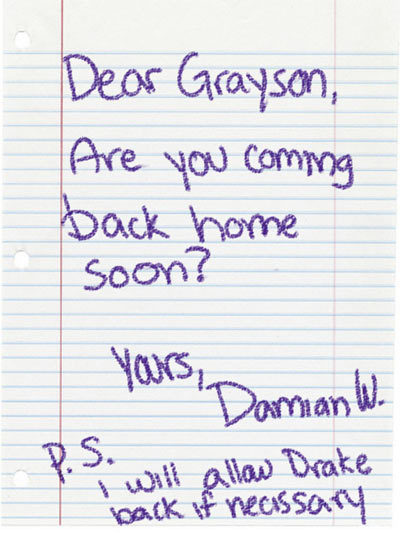 Dear Grayson,
Are you coming
back home
soon?
Yours,
Damian W.
P.S.
I will allow Drake
back if necissary